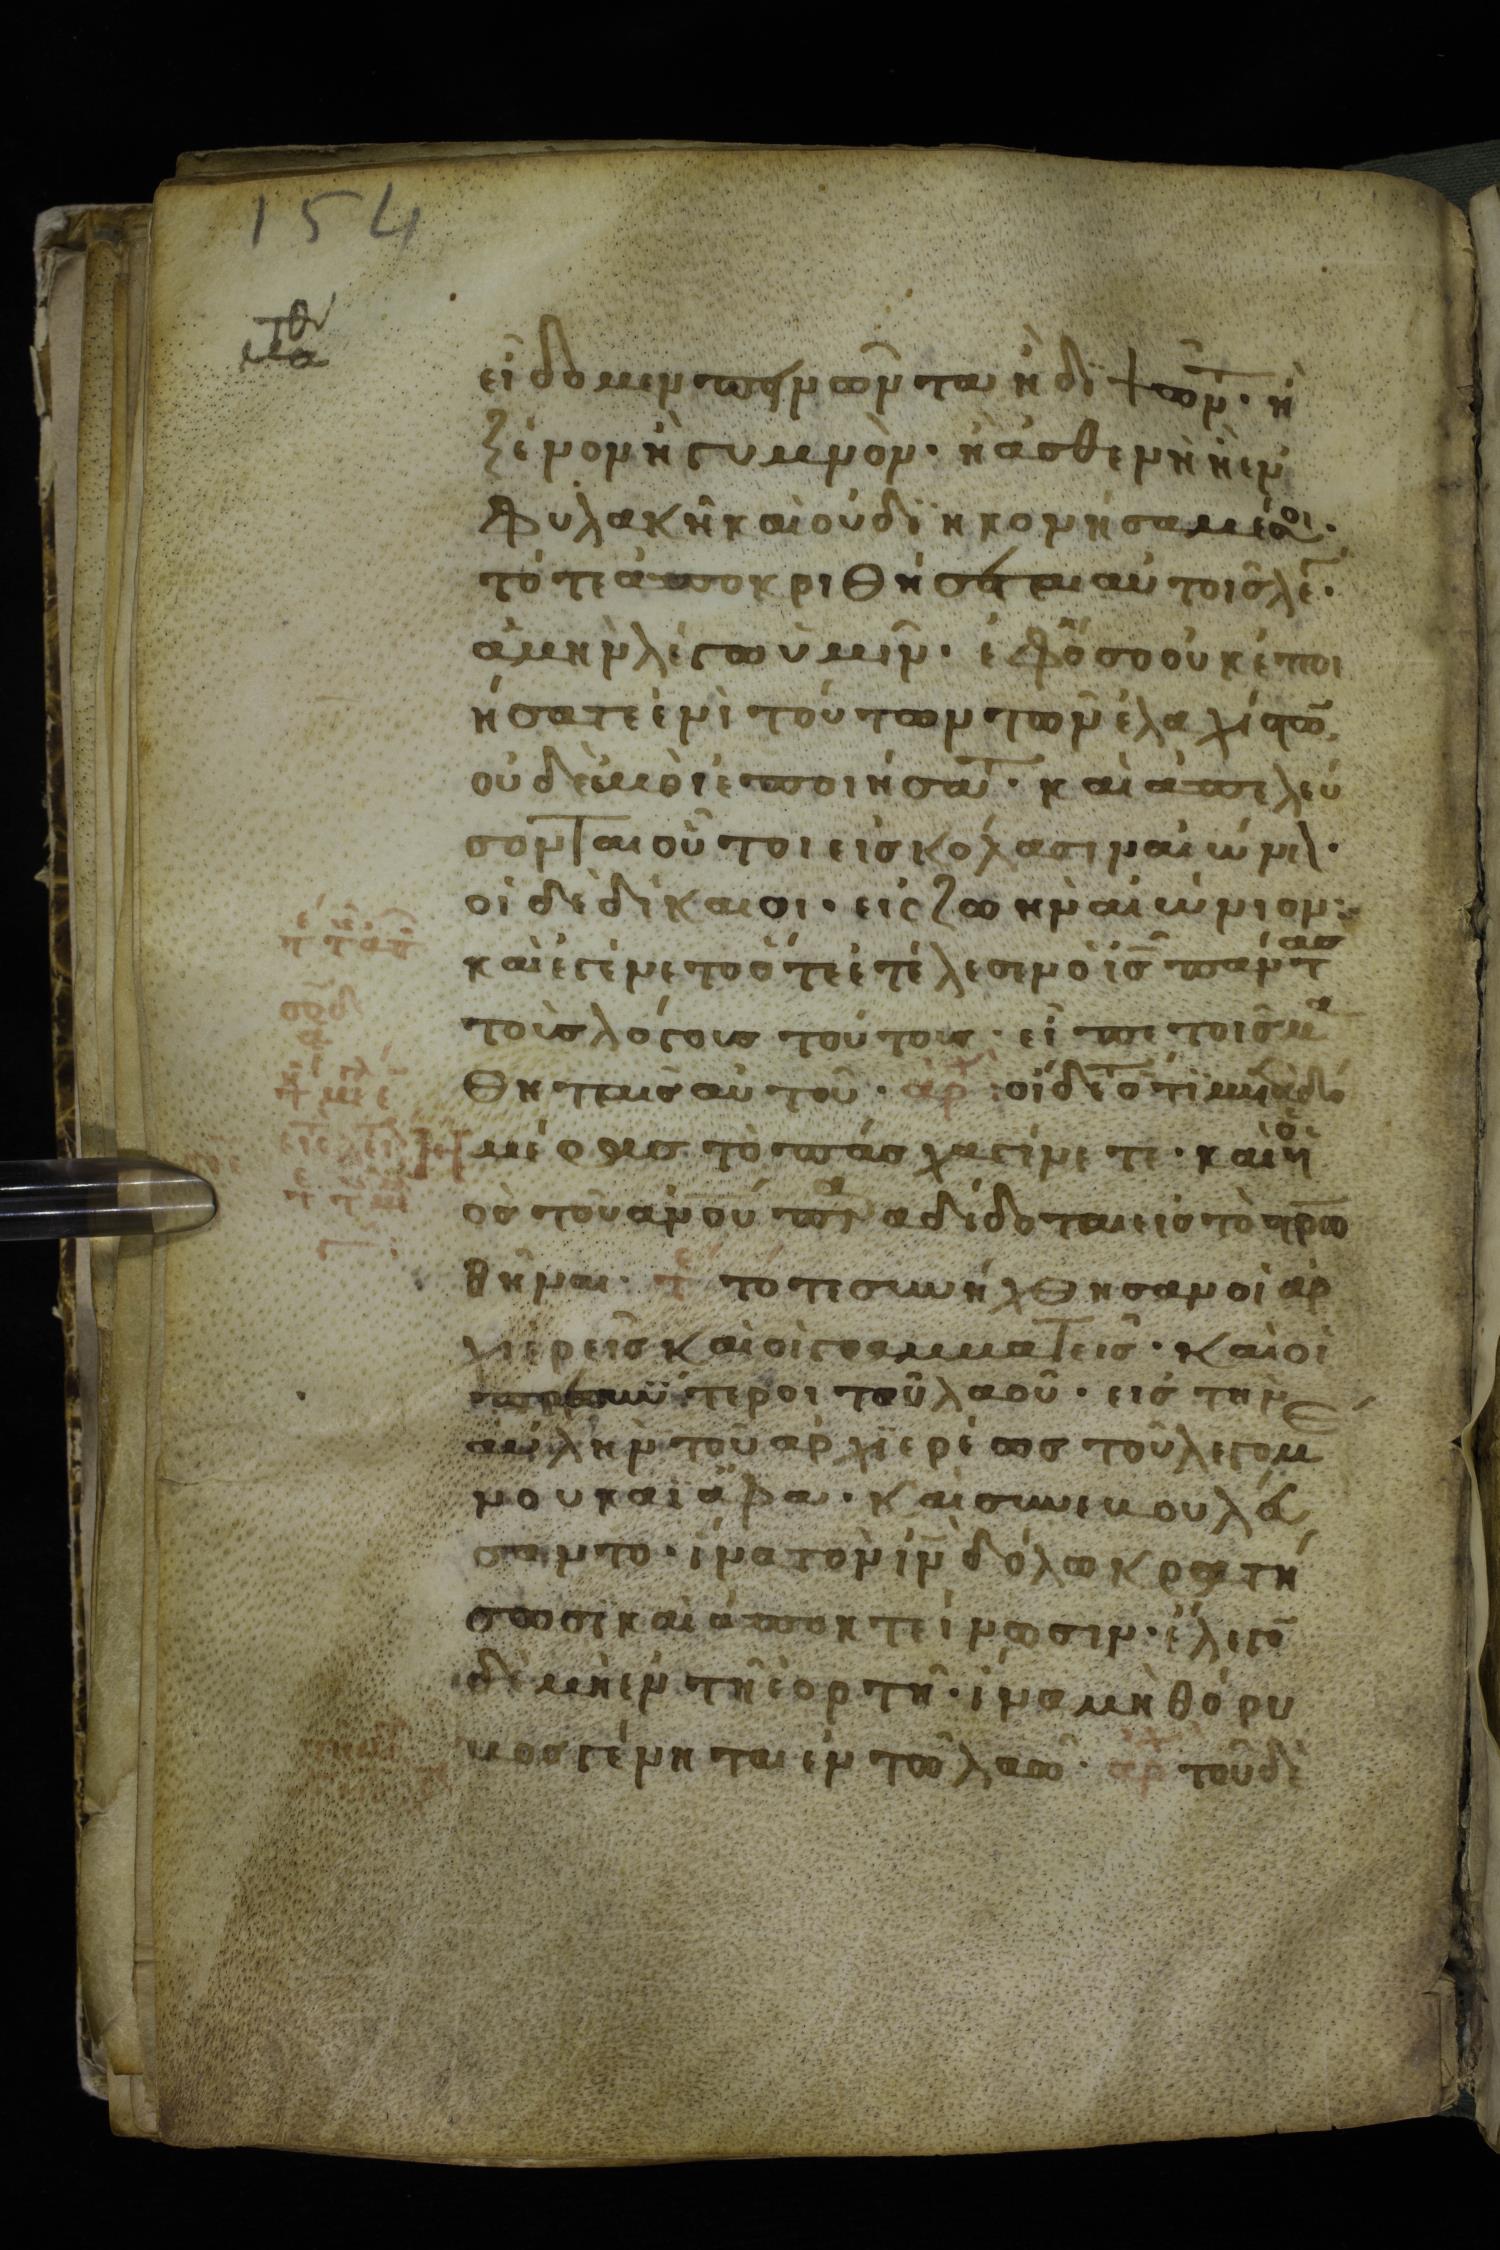 154
εἴδομεν πεινῶντα ἢ διψῶντ· ἢ
ξένον ἢ γυμνὸν· ἢ ἀσθενὴ ἢ ἐν
φυλακῆ καὶ οὐ διηκονήσαμέν σοι·
τότε ἀποκριθήσεται αὐτοῖς λέγ·
ἀμὴν λέγω ὑμῖν· ἐφ ὅσον οὐκ ἐποι
ήσατε ἑνὶ τούτων τῶν ἐλαχίστω
οὐδὲ ἐμοὶ ἐποιήσατ· καὶ ἀπελεύ
σονται οὗτοι εἰς κόλασιν αἰώνι·
οἱ δὲ δίκαιοι· εἰς ζωὴν αἰώνιον:
καὶ ἐγένετο ὅτε ἐτέλεσεν ὁ ις πάντας
τοὺς λόγους τούτους· εἶπε τοῖς μα
θηταῖς αὐτοῦ· ἀρχ: οἴδατε ὅτι μεθ δύο
ἡμέρας τὸ πάσχα γίνεται· καὶ ὁ υἱ
ὸς τοῦ ανου παραδίδοται εἰς τὸ στρω
θῆναι· τότε συνήχθησαν οἱ ἀρ
χιερεῖς καὶ οἱ γραμματεῖς· καὶ οἱ
πρεσβύτεροι τοῦ λαοῦ· εἰς τὴν
αὐλὴν τοῦ ἀρχιερέως τοῦ λεγομέ
νου καϊάφα· καὶ συνεβουλεύ
σαντο· ἵνα τὸν ιν δόλω κρατή
σωσι καὶ ἀποκτείνωσιν· ἔλεγο
δὲ μὴ ἐν τῆ ἑορτῆ· ἵνα μὴ θόρυ
βος γένηται ἐν τῶ λαῶ· ἀρχ τοῦ δὲ